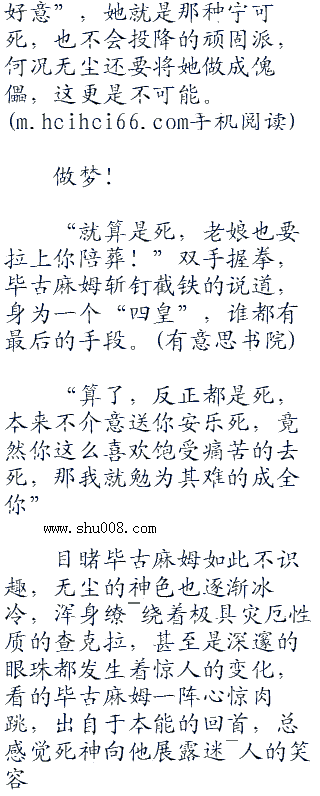 好意”，她就是那种宁可
死，也不会投降的顽固派，
何况无尘还要将她做成傀
儡，这更是不可能。
(m.hcihci66.com手机阅读)
做梦！
“就算是死，老娘也要
拉上你陪葬！”双手握拳，
毕古麻姆斩钉截铁的说道，
身为一个“四皇”，谁都有
最后的手段。(有意思书院)
“算了，反正都是死，
本来不介意送你安乐死，竟
然你这么喜欢饱受痛苦的去
死，那我就勉为其难的成全
你”
www.shu008.com
目睹毕古麻姆如此不识
趣，无尘的神色也逐渐冰
冷，浑身缭¯绕着极具灾厄性
质的查克拉，甚至是深邃的
眼珠都发生着惊人的变化，
看的毕古麻姆一阵心惊肉
跳，出自于本能的回首，总
感觉死神向他展露迷¯人的笑
容